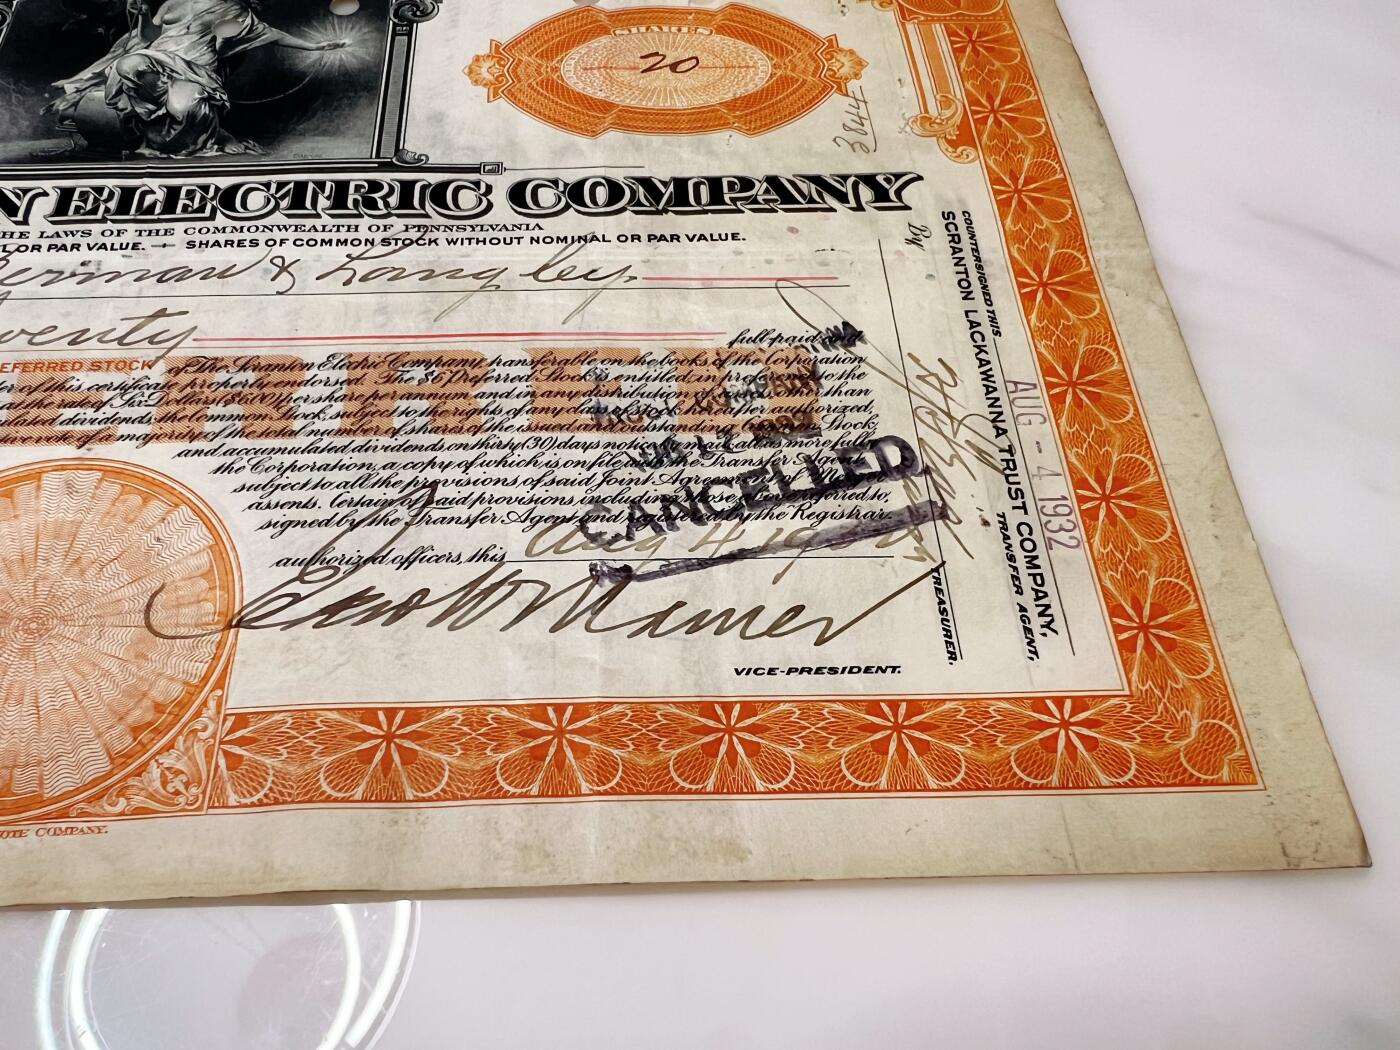 SHARES
20
3844
N ELECTRIC COMPANY
HE LAWS OF THE COMMONWEALTH OF PENNSYLVANIA
L OR PAR VALUE. — SHARES OF COMMON STOCK WITHOUT NOMINAL OR PAR VALUE.
erman & Langley
wenty
full-paid and
EFERRED STOCK of The Scranton Electric Company, transferable on the books of the Corporation
er of this certificate properly endorsed. The $6 Preferred Stock is entitled, in preference to the
Six Dollars ($6.00) per share per annum and in any distribution of assets other than
lated dividends, the Common Stock, subject to the rights of any class of stock hereafter authorized,
vote of a majority of the total number of shares of the issued and outstanding Common Stock,
and accumulated dividends on thirty (30) days notice by mail, all as more fully
the Corporation, a copy of which is on file with the Transfer Agent
subject to all the provisions of said Joint Agreement of Merger
assents. Certain of said provisions, including those above referred to,
signed by the Transfer Agent and registered by the Registrar.
authorized officers, this Aug 4 19
CANCELLED
VICE-PRESIDENT.
TREASURER.
COUNTERSIGNED THIS AUG - 4 1932
SCRANTON LACKAWANNA TRUST COMPANY,
TRANSFER AGENT,
By
OTE COMPANY.